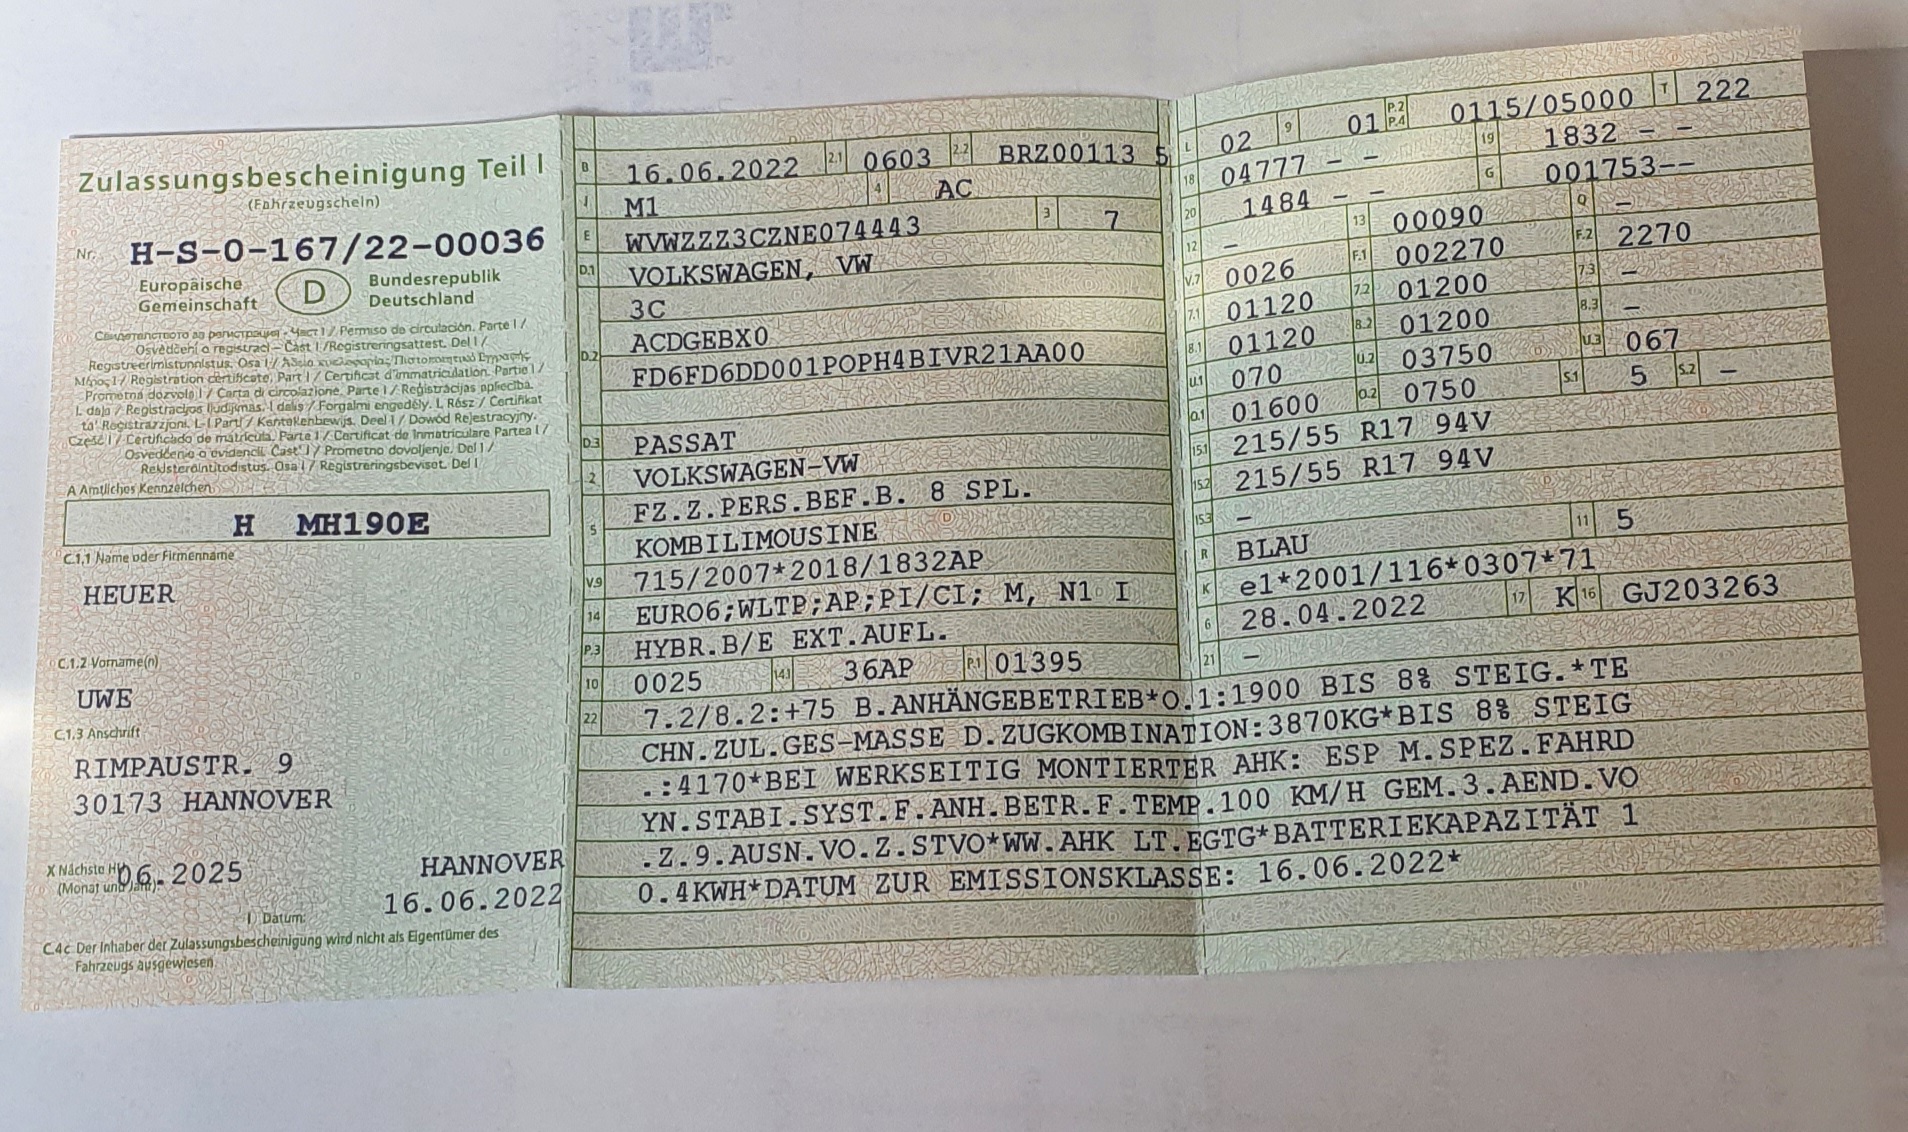 Zulassungsbescheinigung Teil I
(Fahrzeugschein)
Nr. H-S-0-167/22-00036
Europäische Gemeinschaft D Bundesrepublik Deutschland
Свидетелство за регистрация - Част I / Permiso de circulación. Parte I /
Osvědčení o registraci – Část I / Registreringsattest. Del I /
Registreerimistunnistus. Osa I / Άδεια κυκλοφορίας/Πιστοποιητικό Εγγραφής
Μέρος I / Registration certificate. Part I / Certificat d'immatriculation. Partie I /
Prometna dozvola I / Carta di circolazione. Parte I / Reģistrācijas apliecība.
I. daļa / Registracijos liudijimas. I dalis / Forgalmi engedély. I. Rész / Ċertifikat
ta' Reġistrazzjoni. L-I Parti / Kentekenbewijs. Deel I / Dowód Rejestracyjny.
Część I / Certificado de matrícula. Parte I / Certificat de înmatriculare Partea I /
Osvedčenie o evidencii. Časť I / Prometno dovoljenje. Del I /
Rekisteröintitodistus. Osa I / Registreringsbeviset. Del I
A Amtliches Kennzeichen
H MH190E
C.1.1 Name oder Firmenname
HEUER
C.1.2 Vorname(n)
UWE
C.1.3 Anschrift
RIMPAUSTR. 9
30173 HANNOVER
X Nächste HU 06.2025 HANNOVER
(Monat und Jahr) 16.06.2022
I Datum:
C.4c Der Inhaber der Zulassungsbescheinigung wird nicht als Eigentümer des
Fahrzeugs ausgewiesen
B 16.06.2022 2.1 0603 2.2 BRZ00113 5
J M1 4 AC
E WVWZZZ3CZNE074443 3 7
D.1 VOLKSWAGEN, VW
3C
D.2 ACDGEBX0
FD6FD6DD001POPH4BIVR21AA00
D.3 PASSAT
2 VOLKSWAGEN-VW
5 FZ.Z.PERS.BEF.B. 8 SPL.
KOMBILIMOUSINE
V.9 715/2007*2018/1832AP
14 EURO6;WLTP;AP;PI/CI; M, N1 I
P.3 HYBR.B/E EXT.AUFL.
10 0025 14.1 36AP P.1 01395
L 02 9 01 P.2 P.4 0115/05000 T 222
18 04777 - - 19 1832 - -
20 1484 - - G 001753--
12 - 13 00090 Q -
V.7 0026 F.1 002270 F.2 2270
7.1 01120 7.2 01200 7.3 -
8.1 01120 8.2 01200 8.3 -
U.1 070 U.2 03750 U.3 067
O.1 01600 O.2 0750 S.1 5 S.2 -
15.1 215/55 R17 94V
15.2 215/55 R17 94V
15.3 -
R BLAU 11 5
K e1*2001/116*0307*71
6 28.04.2022 17 K 16 GJ203263
21 -
22 7.2/8.2:+75 B.ANHÄNGEBETRIEB*O.1:1900 BIS 8% STEIG.*TE
CHN.ZUL.GES-MASSE D.ZUGKOMBINATION:3870KG*BIS 8% STEIG
.:4170*BEI WERKSEITIG MONTIERTER AHK: ESP M.SPEZ.FAHRD
YN.STABI.SYST.F.ANH.BETR.F.TEMP.100 KM/H GEM.3.AEND.VO
.Z.9.AUSN.VO.Z.STVO*WW.AHK LT.EGTG*BATTERIEKAPAZITÄT 1
0.4KWH*DATUM ZUR EMISSIONSKLASSE: 16.06.2022*